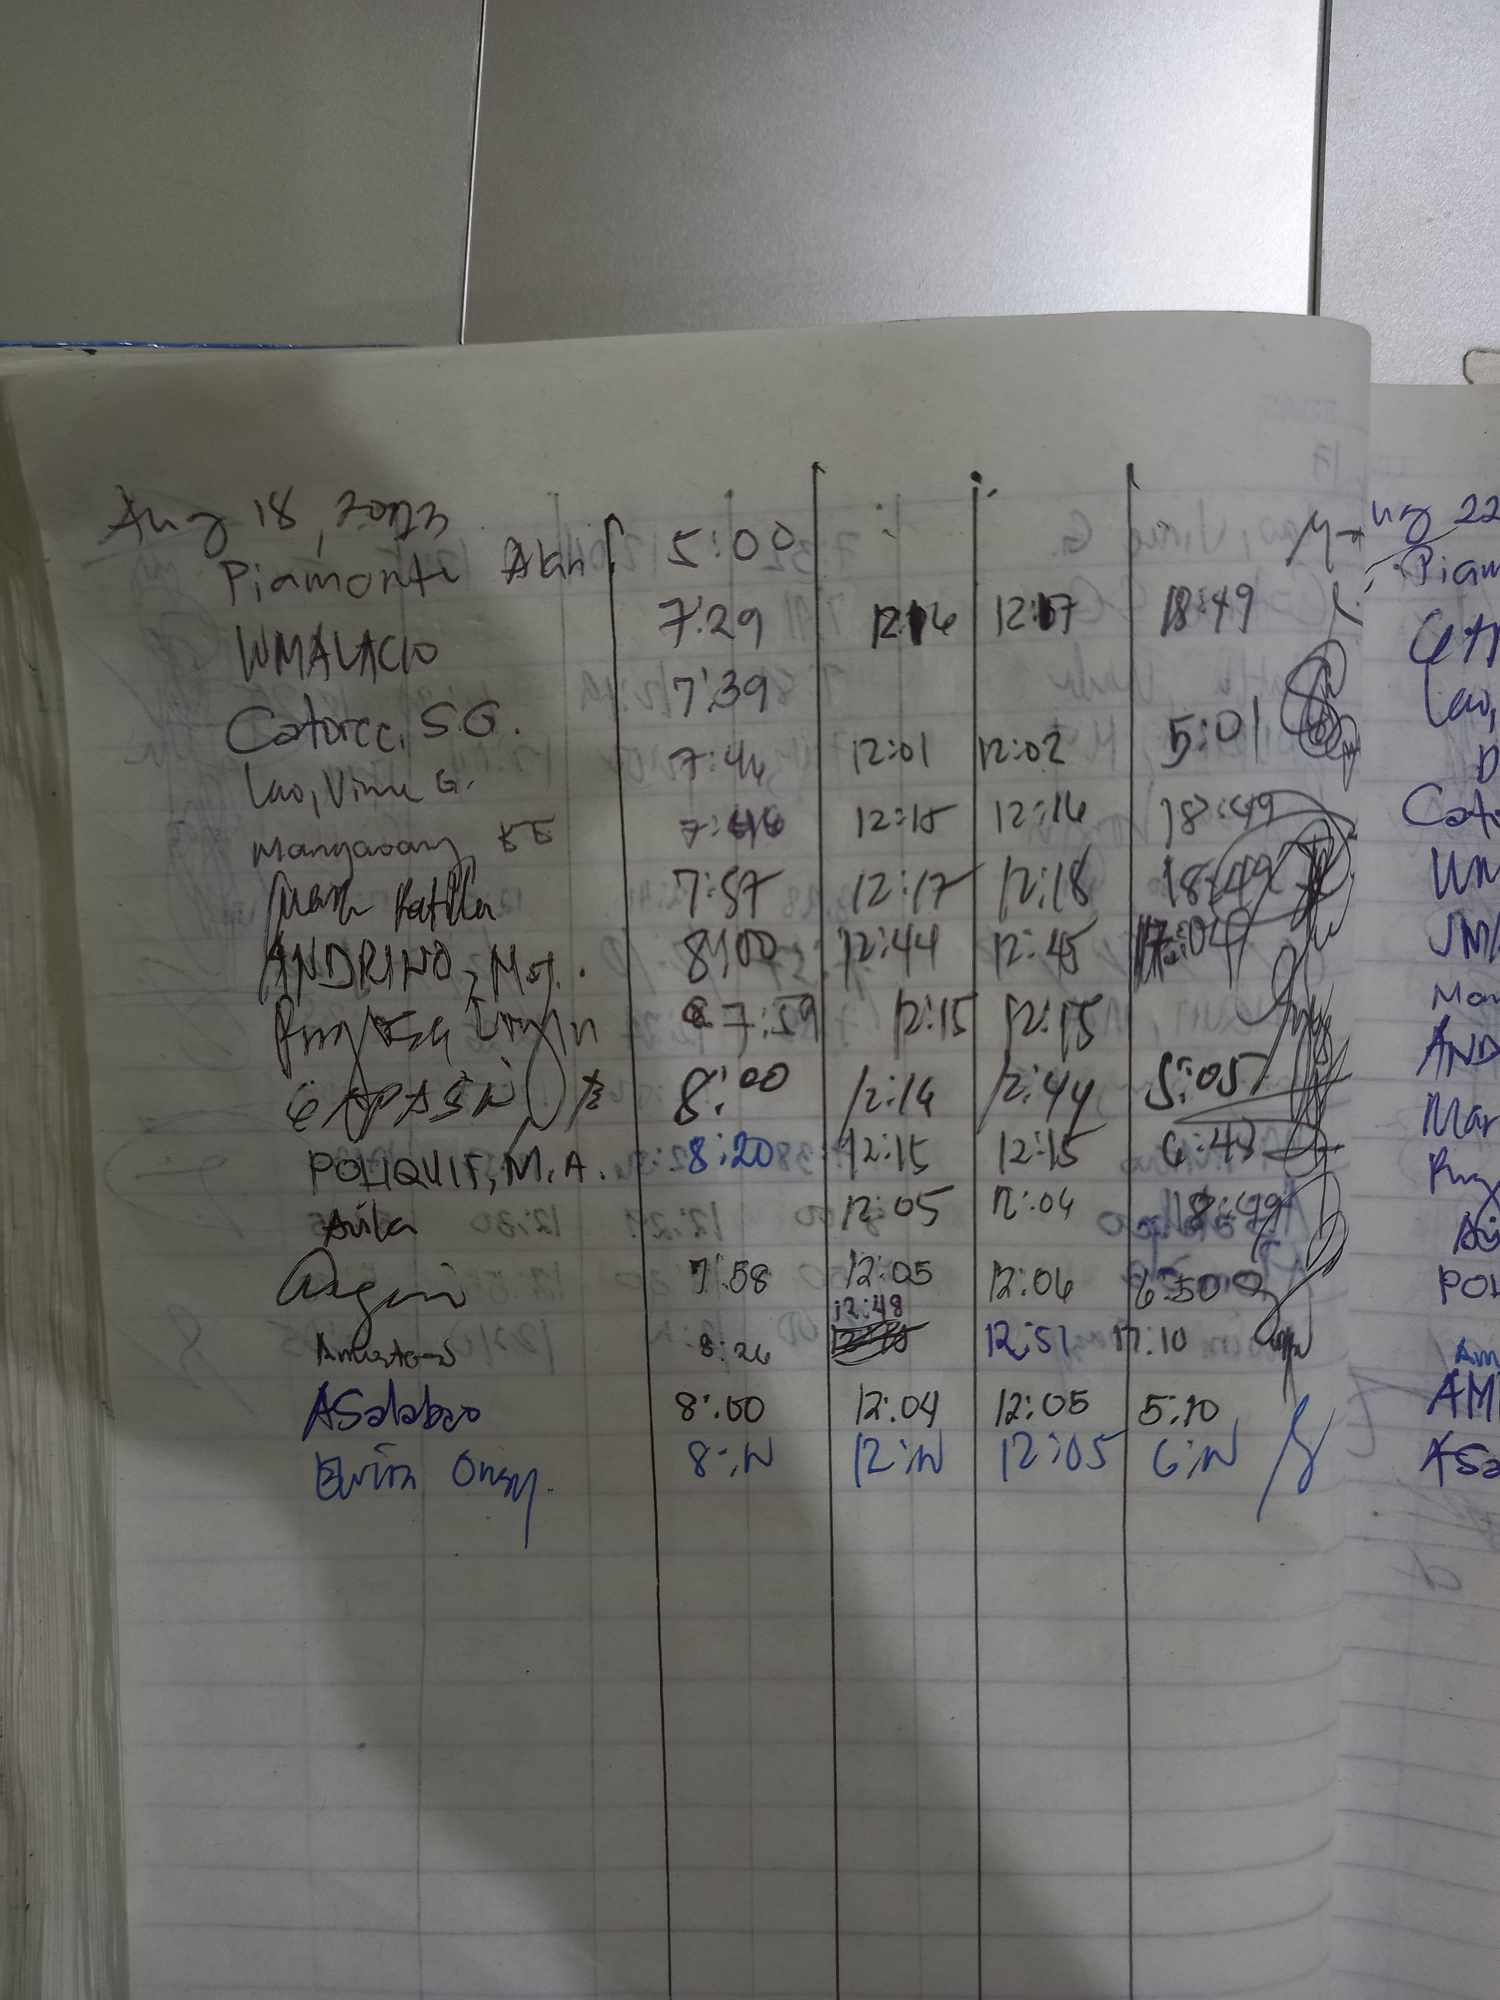 Aug 18, 2023
Piamonte Alan 5:00
WMALACIO 7:29 12:16 12:17 18:49
Catorce, S.G. 7:39
Lao, Vime G. 7:44 12:01 12:02 5:01
Mangaoang 7:46 12:15 12:16 18:49
Mark 7:57 12:17 12:18 18:49
ANDRINO, 8:00 12:44 12:45 17:04
7:59 12:15 12:15
CAPASIN 8:00 12:14 12:44 5:05
POLIQUIT, M.A. 8:20 12:15 12:15 6:43
Avila 12:05 12:04 18:49
7:58 12:05 12:06 6:50
12:48
8:26 12:51 17:10
ASalabao 8:00 12:04 12:05 5:10
8:N 12:N 12:05 6:N
ug 22
Piam
Lao,
D
Cato
WM
JMA
Man
AND
Mar
POL
Am
AM
ASa